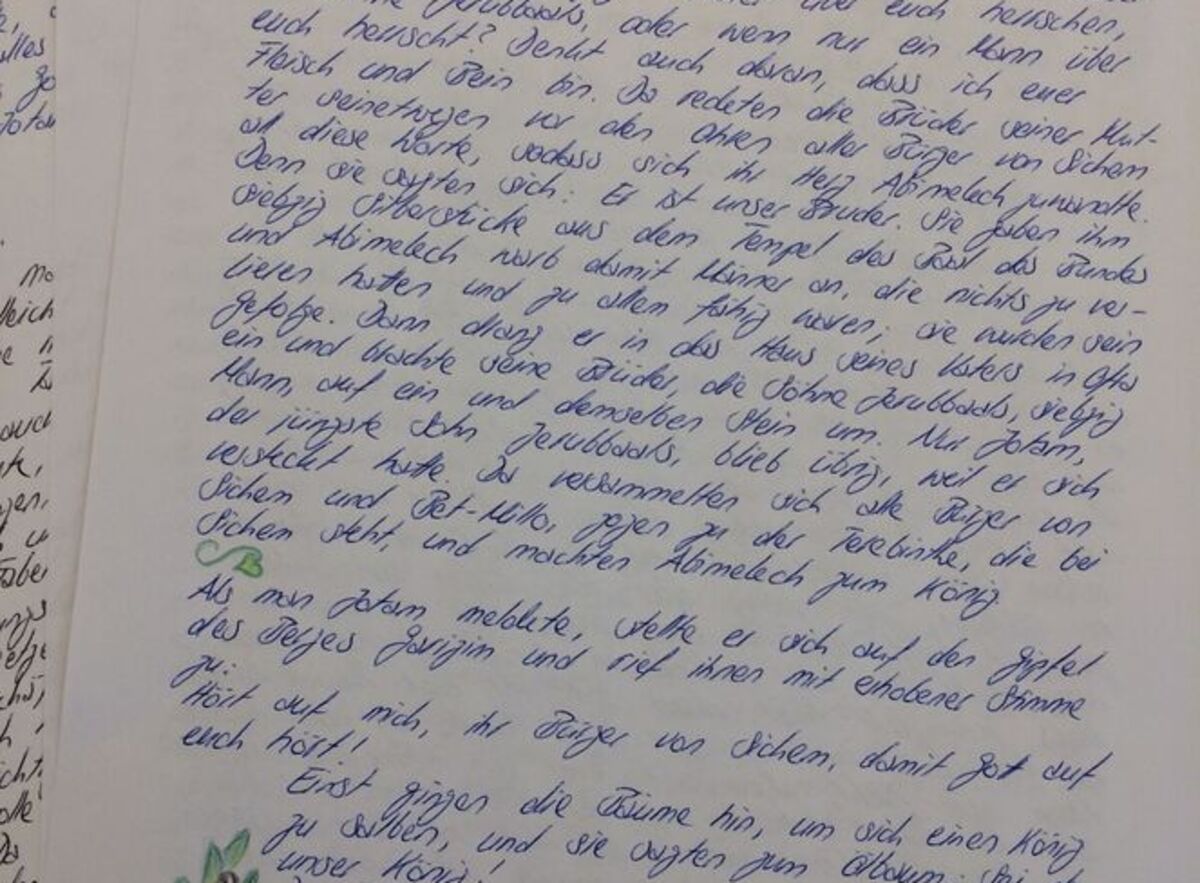 alles
Jotam
Jerubbaals, über euch herrschen,
oder wenn nur ein Mann über
euch herrscht? Denkt auch daran, dass ich euer
Fleisch und Bein bin. Da redeten die Brüder seiner Mut-
ter seinetwegen vor den Ohren aller Bürger von Sichem
all diese Worte, sodass sich ihr Herz Abimelech zuwandte.
Denn sie sagten sich: Er ist unser Bruder. Sie gaben ihm
siebzig Silberstücke aus dem Tempel des Baal des Bundes
und Abimelech warb damit Männer an, die nichts zu ver-
lieren hatten und zu allem fähig waren; sie wurden sein
Gefolge. Dann drang er in das Haus seines Vaters in Ofra
ein und brachte seine Brüder, die Söhne Jerubbaals, siebzig
Mann, auf ein und demselben Stein um. Nur Jotam,
der jüngste Sohn Jerubbaals, blieb übrig, weil er sich
versteckt hatte. Da versammelten sich alle Bürger von
Sichem und Bet-Millo, zogen zu der Terebinthe, die bei
Sichem steht, und machten Abimelech zum König.
Als man Jotam meldete, stellte er sich auf den Gipfel
des Berges Garizim und rief ihnen mit erhobener Stimme
zu:
Hört auf mich, ihr Bürger von Sichem, damit Got auf
euch hört!
Einst gingen die Bäume hin, um sich einen König
zu salben, und sie sagten zum Ölbaum:
unser König!